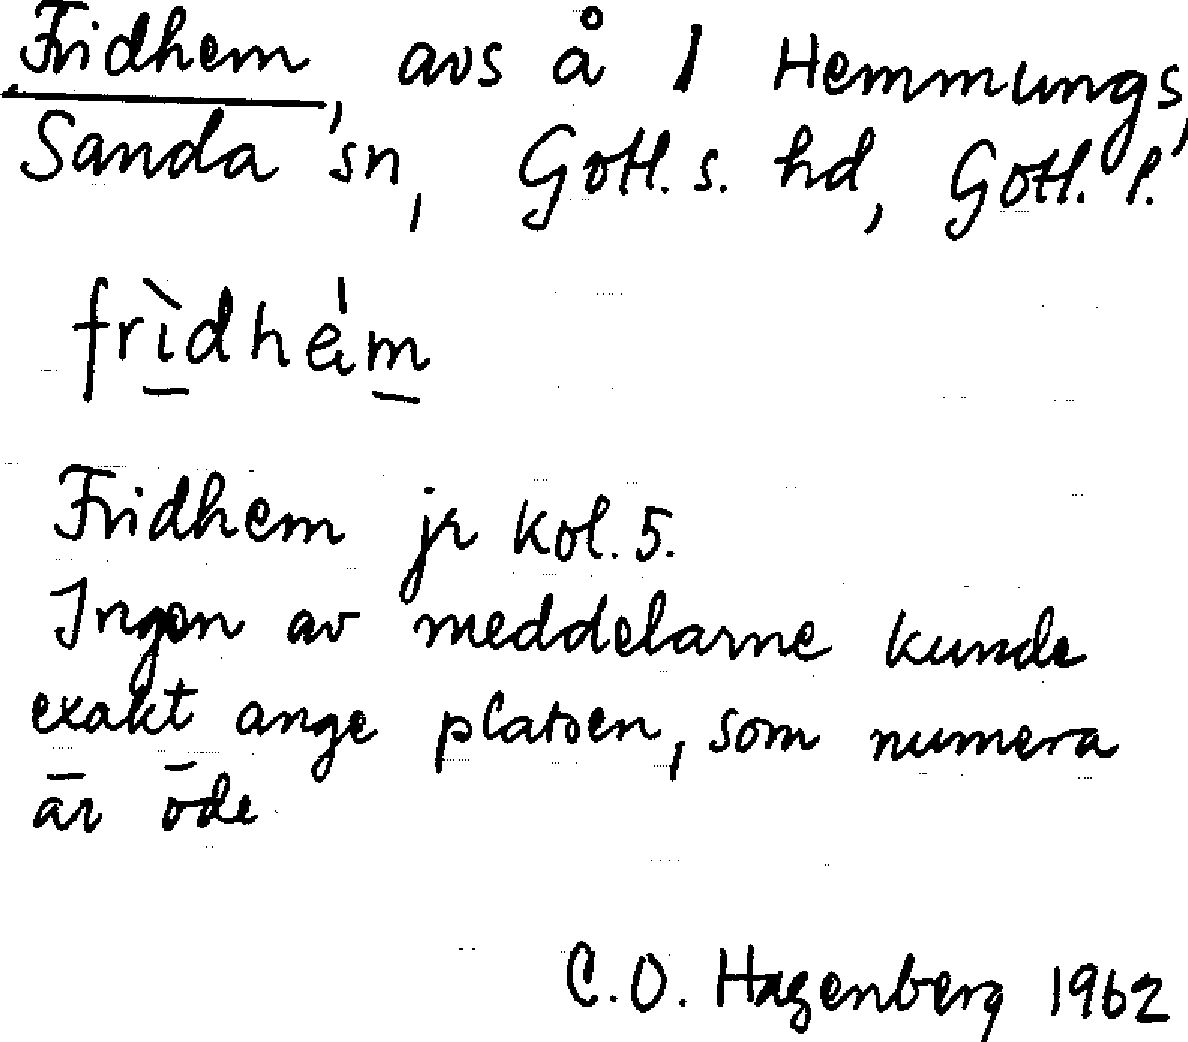 Fridhem, avs å 1 Hemmungs,
Sanda sn, Gotl. s. hd, Gotl. l.
frìdhéim
Fridhem jr kol. 5.
Ingen av meddelarne kunde
exakt ange platsen, som numera
är öde
C. O. Hagenberg 1962